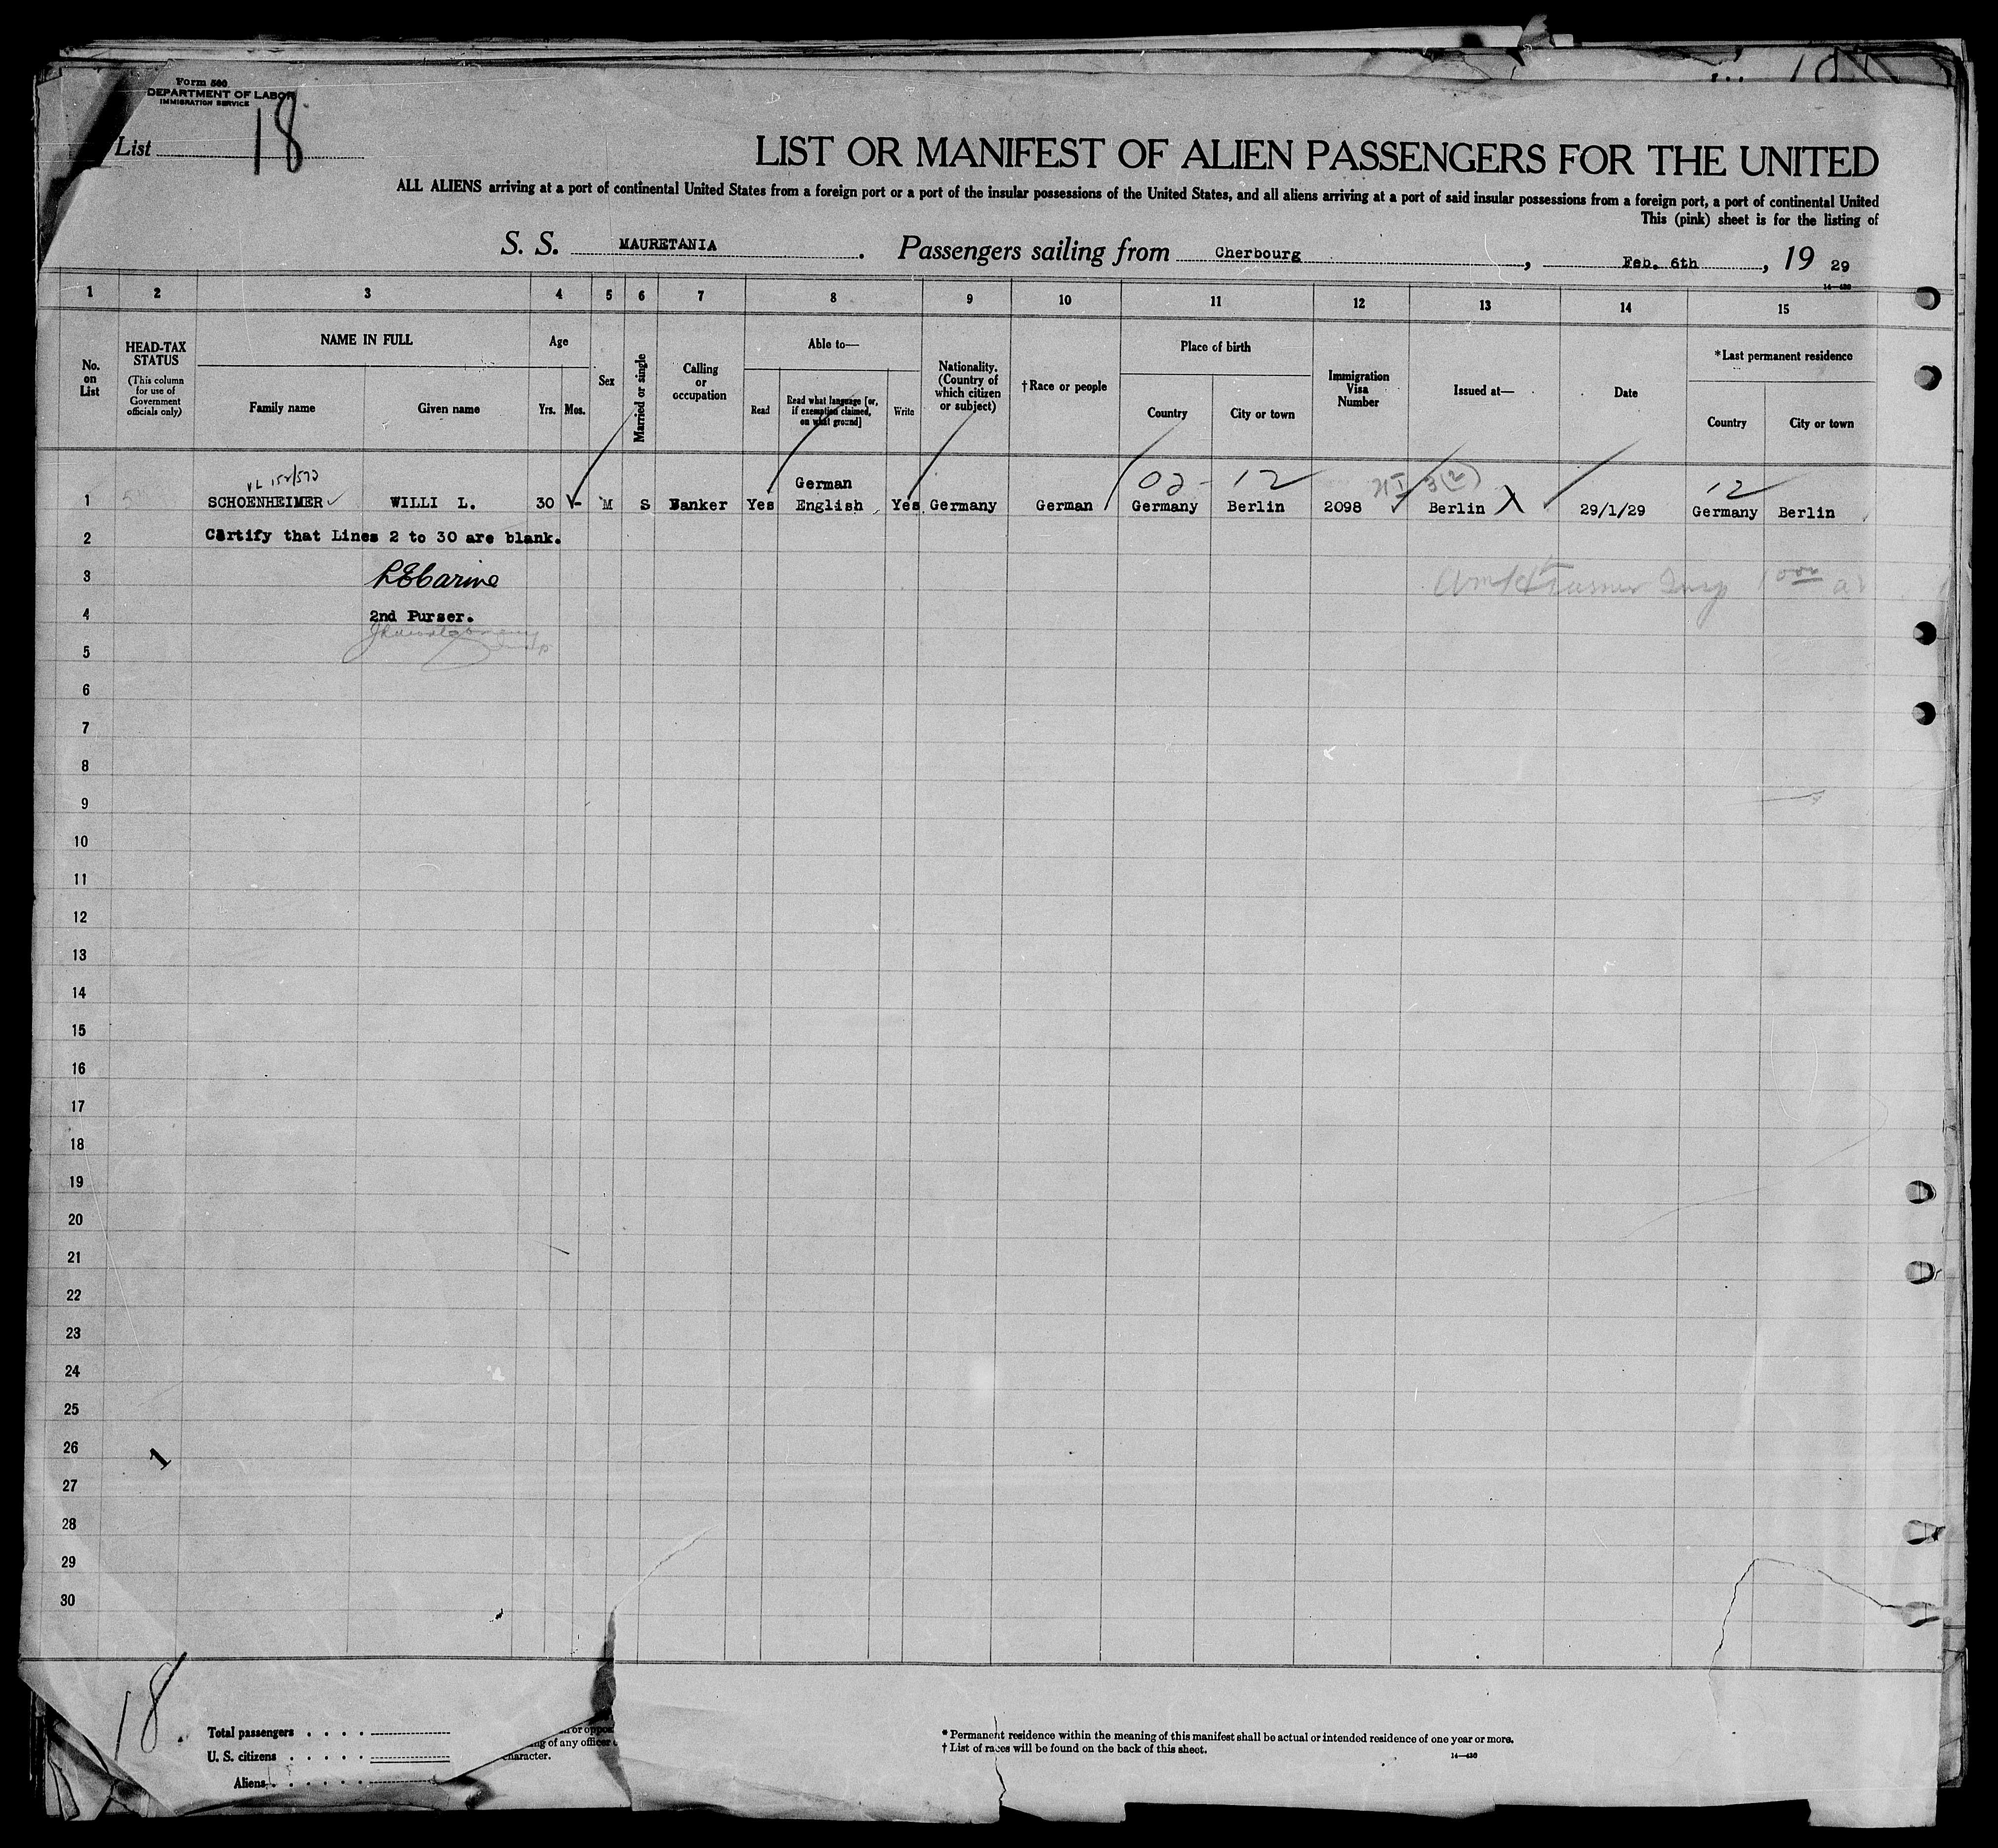 Form 500
DEPARTMENT OF LABOR
IMMIGRATION SERVICE
List 18
LIST OR MANIFEST OF ALIEN PASSENGERS FOR THE UNITED
ALL ALIENS arriving at a port of continental United States from a foreign port or a port of the insular possessions of the United States, and all aliens arriving at a port of said insular possessions from a foreign port, a port of continental United
This (pink) sheet is for the listing of
S. S. MAURETANIA . Passengers sailing from Cherbourg , Feb. 6th , 19 29
1 2 3 4 5 6 7 8 9 10 11 12 13 14 15
No. on List
HEAD-TAX STATUS
(This column for use of Government officials only)
NAME IN FULL
Family name Given name
Age
Yrs. Mos.
Sex
Married or single
Calling or occupation
Able to—
Read Read what language [or, if exemption claimed, on what ground] Write
Nationality. (Country of which citizen or subject)
†Race or people
Place of birth
Country City or town
Immigration Visa Number
Issued at—
Date
*Last permanent residence
Country City or town
02 - 12 3(2) 12
German
1 SCHOENHEIMER WILLI L. 30 M S Banker Yes English Yes Germany German Germany Berlin 2098 Berlin 29/1/29 Germany Berlin
2 Certify that Lines 2 to 30 are blank.
3
4 2nd Purser.
5
6
7
8
9
10
11
12
13
14
15
16
17
18
19
20
21
22
23
24
25
26 1
27
28
29
30
18
Total passengers
U. S. citizens
Aliens
of any officer
character.
* Permanent residence within the meaning of this manifest shall be actual or intended residence of one year or more.
† List of races will be found on the back of this sheet.
14—430